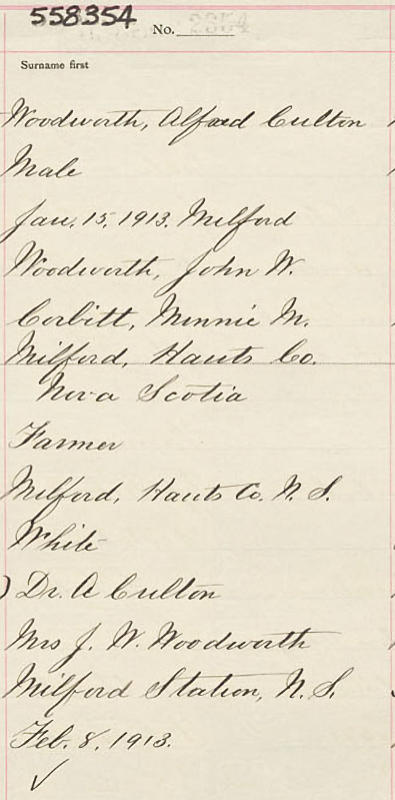 558354
No.
Surname first
Woodworth, Alfred Culton
Male
Jan. 15, 1913. Milford
Woodworth, John W.
Corbitt, Minnie M.
Milford, Hants Co.
Nova Scotia
Farmer
Milford, Hants Co. N. S.
White
) Dr. A Culton
Mrs J. W. Woodworth
Milford Station, N. S.
Feb. 8, 1913.
✓